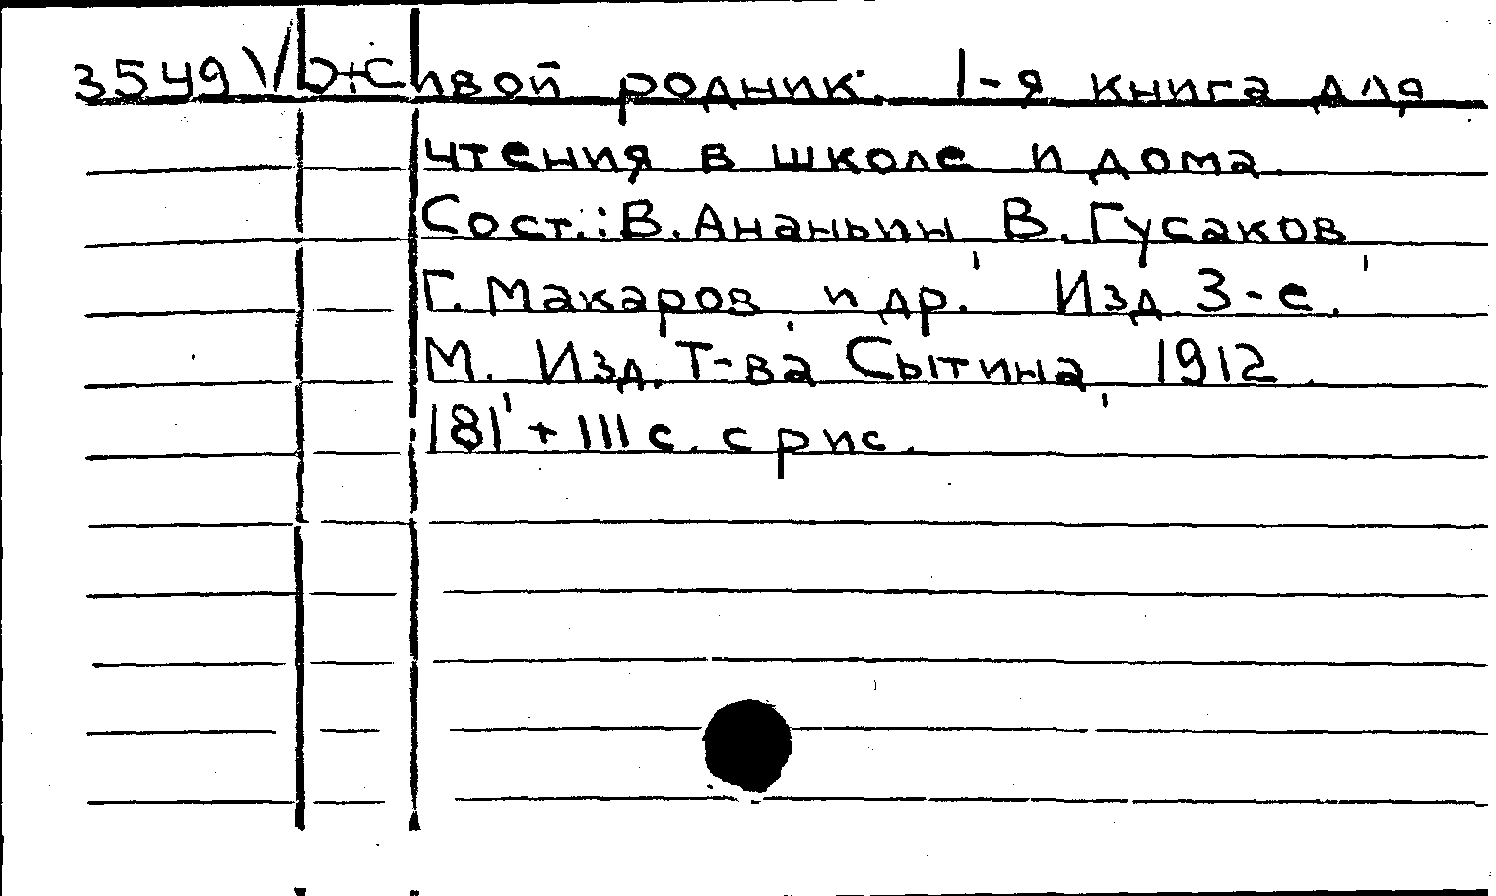 3549 V Живой родник. 1-я книга для
чтения в школе и дома.
Сост.: В. Ананьин, В. Гусаков,
Г. Макаров, и др. Изд. 3-е.
М. Изд. Т-ва Сытина, 1912.
181 + III с. с рис.